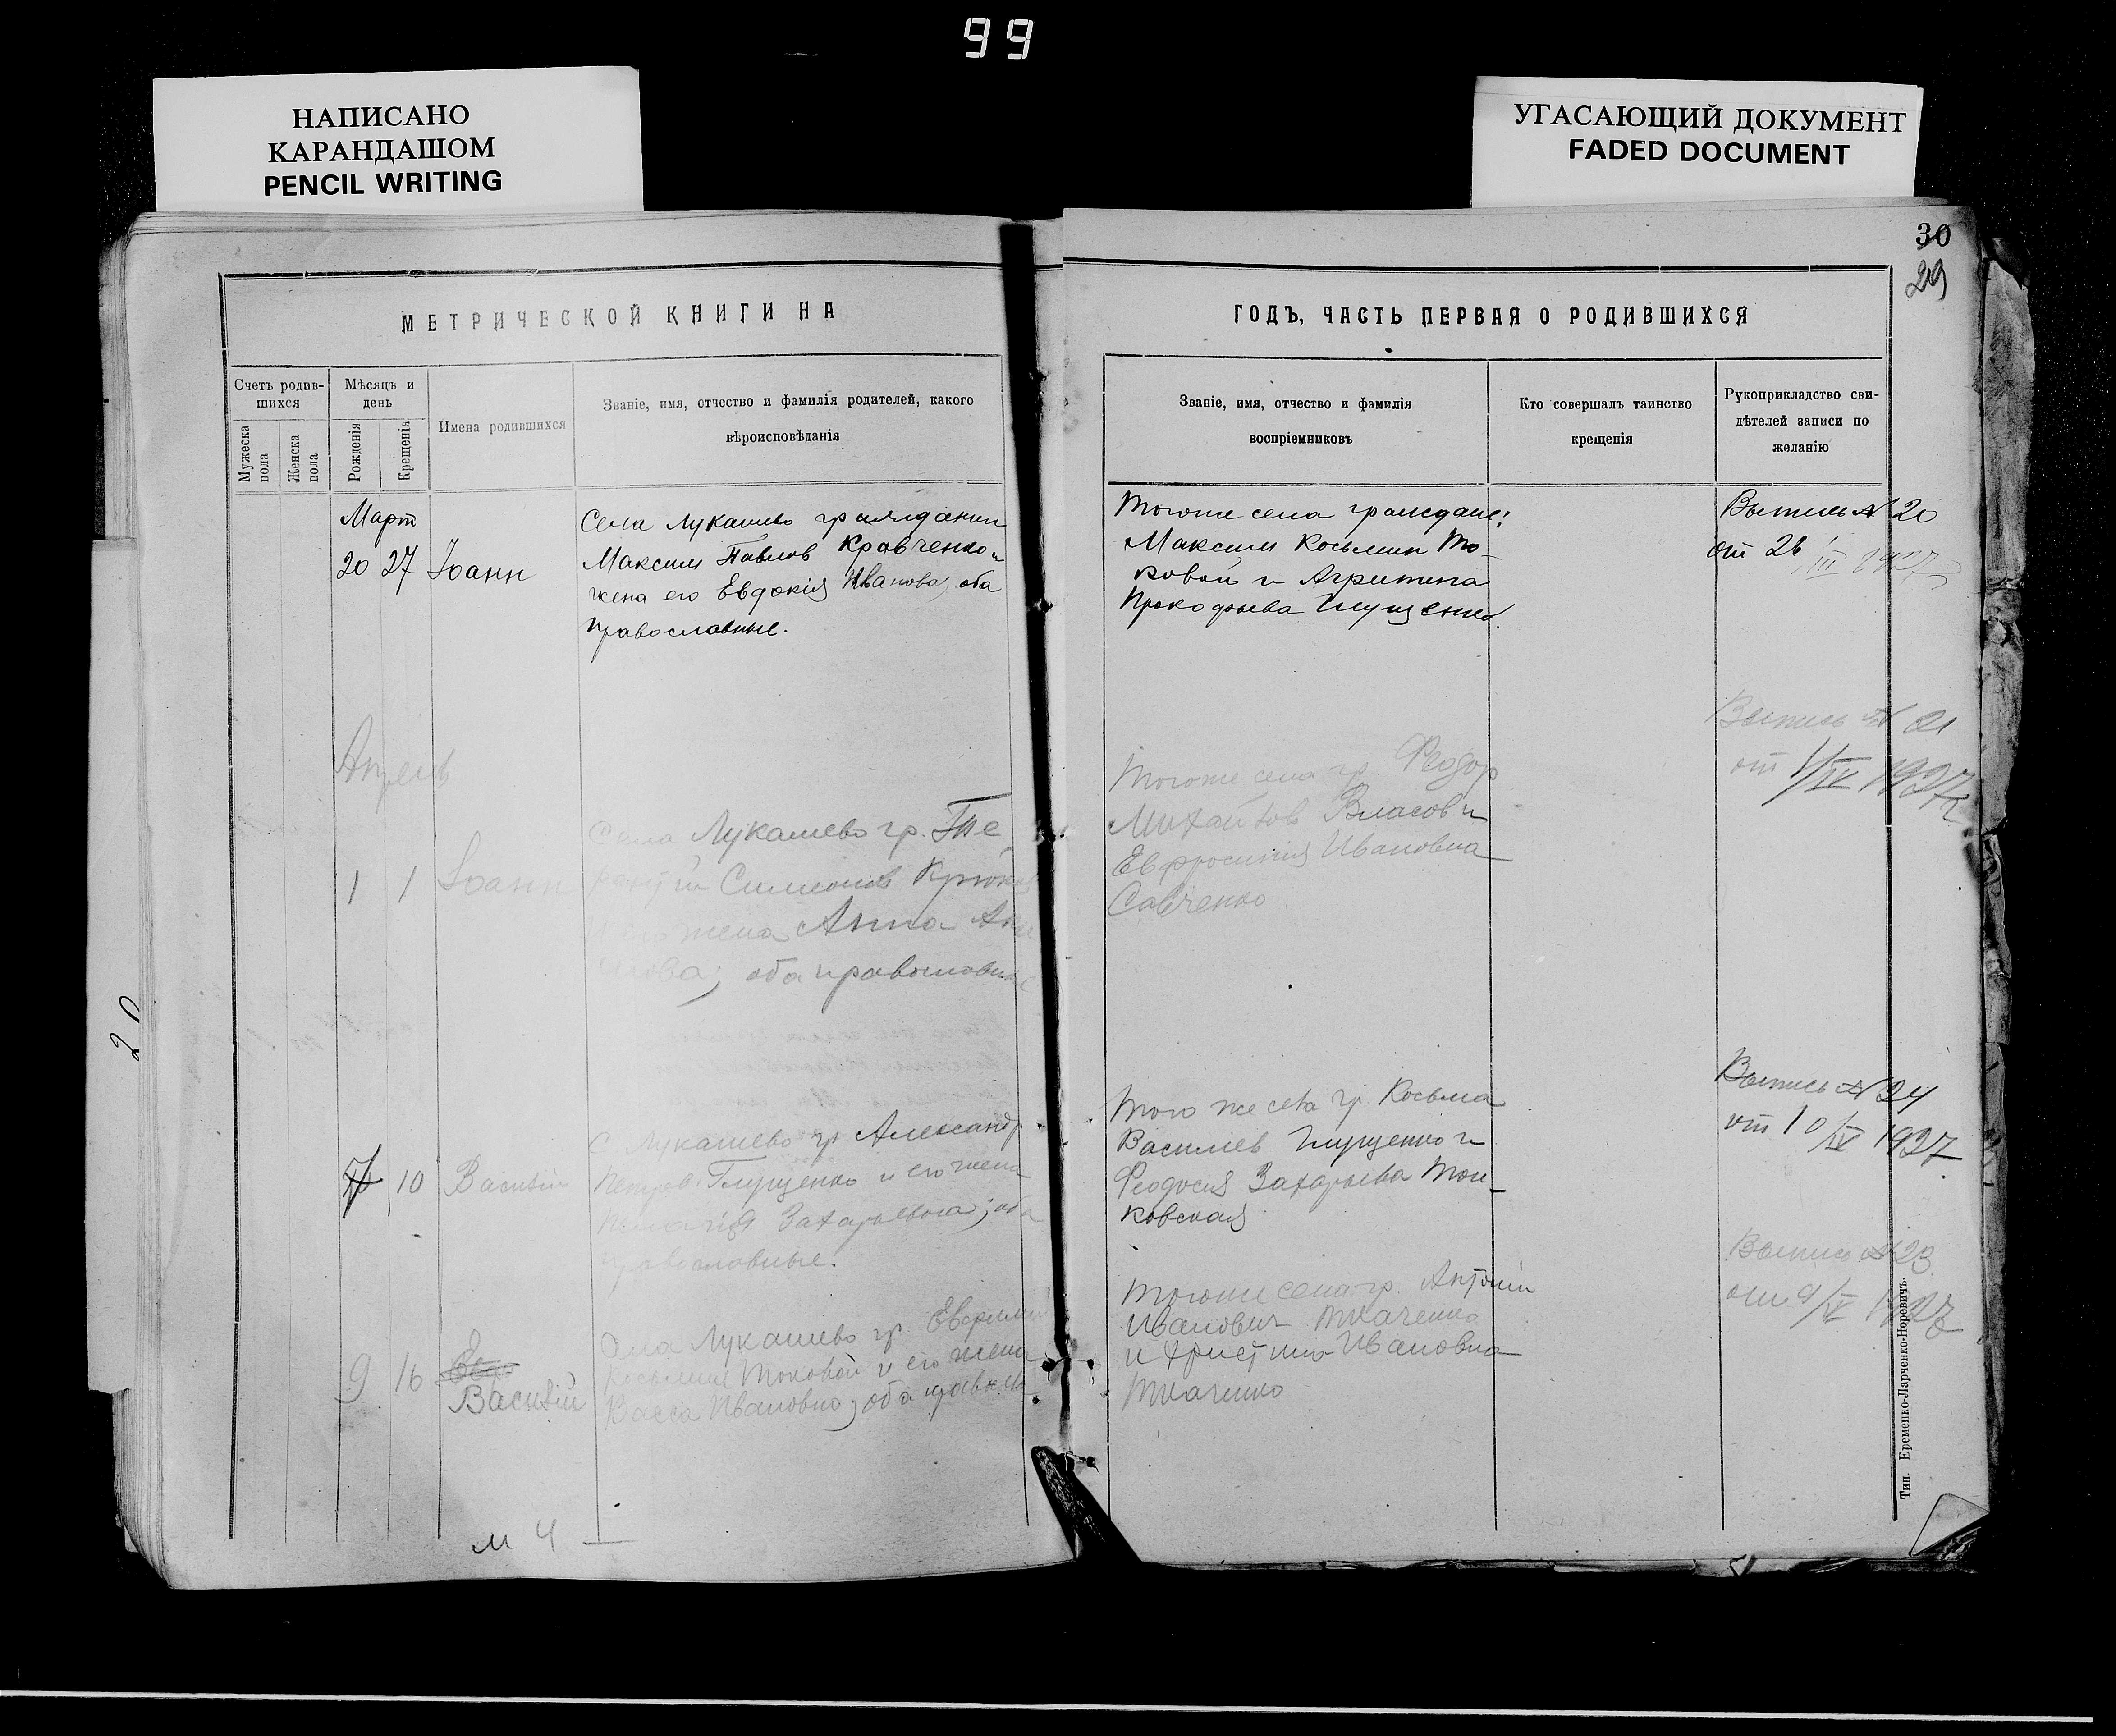 99
НАПИСАНО
КАРАНДАШОМ
PENCIL WRITING
УГАСАЮЩИЙ ДОКУМЕНТ
FADED DOCUMENT
30
29
МЕТРИЧЕСКОЙ КНИГИ НА
Счетъ родив-
шихся
Мѣсяцъ и
день
Мужеска
пола
Женска
пола
Рожденія
Крещенія
Имена родившихся
Званіе, имя, отчество и фамилія родителей, какого
вѣроисповѣданія
Март
20 27 Іоанн
Села Лукашево гражданин
Максим Павлов Кравченко и
жена его Евдокія Иванова, оба
православные.
Апрель
1 1 Іоанн
Села Лукашево гр. Те
рентій Симеонов Крюков
и его жена Анна
оба православные
7 10 Василій
С Лукашево гр Александр
Петров Глущенко и его жена
Пелагія Захарьевна; оба
православные.
9 16
Василій
Села Лукашево гр. Евфимій
Косьмин Токовой и его жена
Васса Ивановна; оба
м 4
20
ГОДЪ, ЧАСТЬ ПЕРВАЯ О РОДИВШИХСЯ
Званіе, имя, отчество и фамилія
воспріемниковъ
Кто совершалъ таинство
крещенія
Рукоприкладство сви-
дѣтелей записи по
желанію
Тогоже села граждане:
Максим Косьмин То-
ковой и Агрипина
Прокофьева Глущенко.
Выпись № 20
от 26 III 1927
Тогоже села гр. Феодор
Михайлов Власов и
Евфросинія Ивановна
Савченко
Выпись № 21
от 1/IV 1927
Того же села гр. Косьма
Васильев Глущенко и
Феодосія Захарьева Тон-
ковская
Выпись № 24
от 10/IV 1927
Тогоже села гр. Антоній
Иванович Ткаченко
и Христина Ивановна
Ткаченко
Выпись № 23
от 9/IV 1927
Тип. Еременко-Ларченко-Норовичъ.